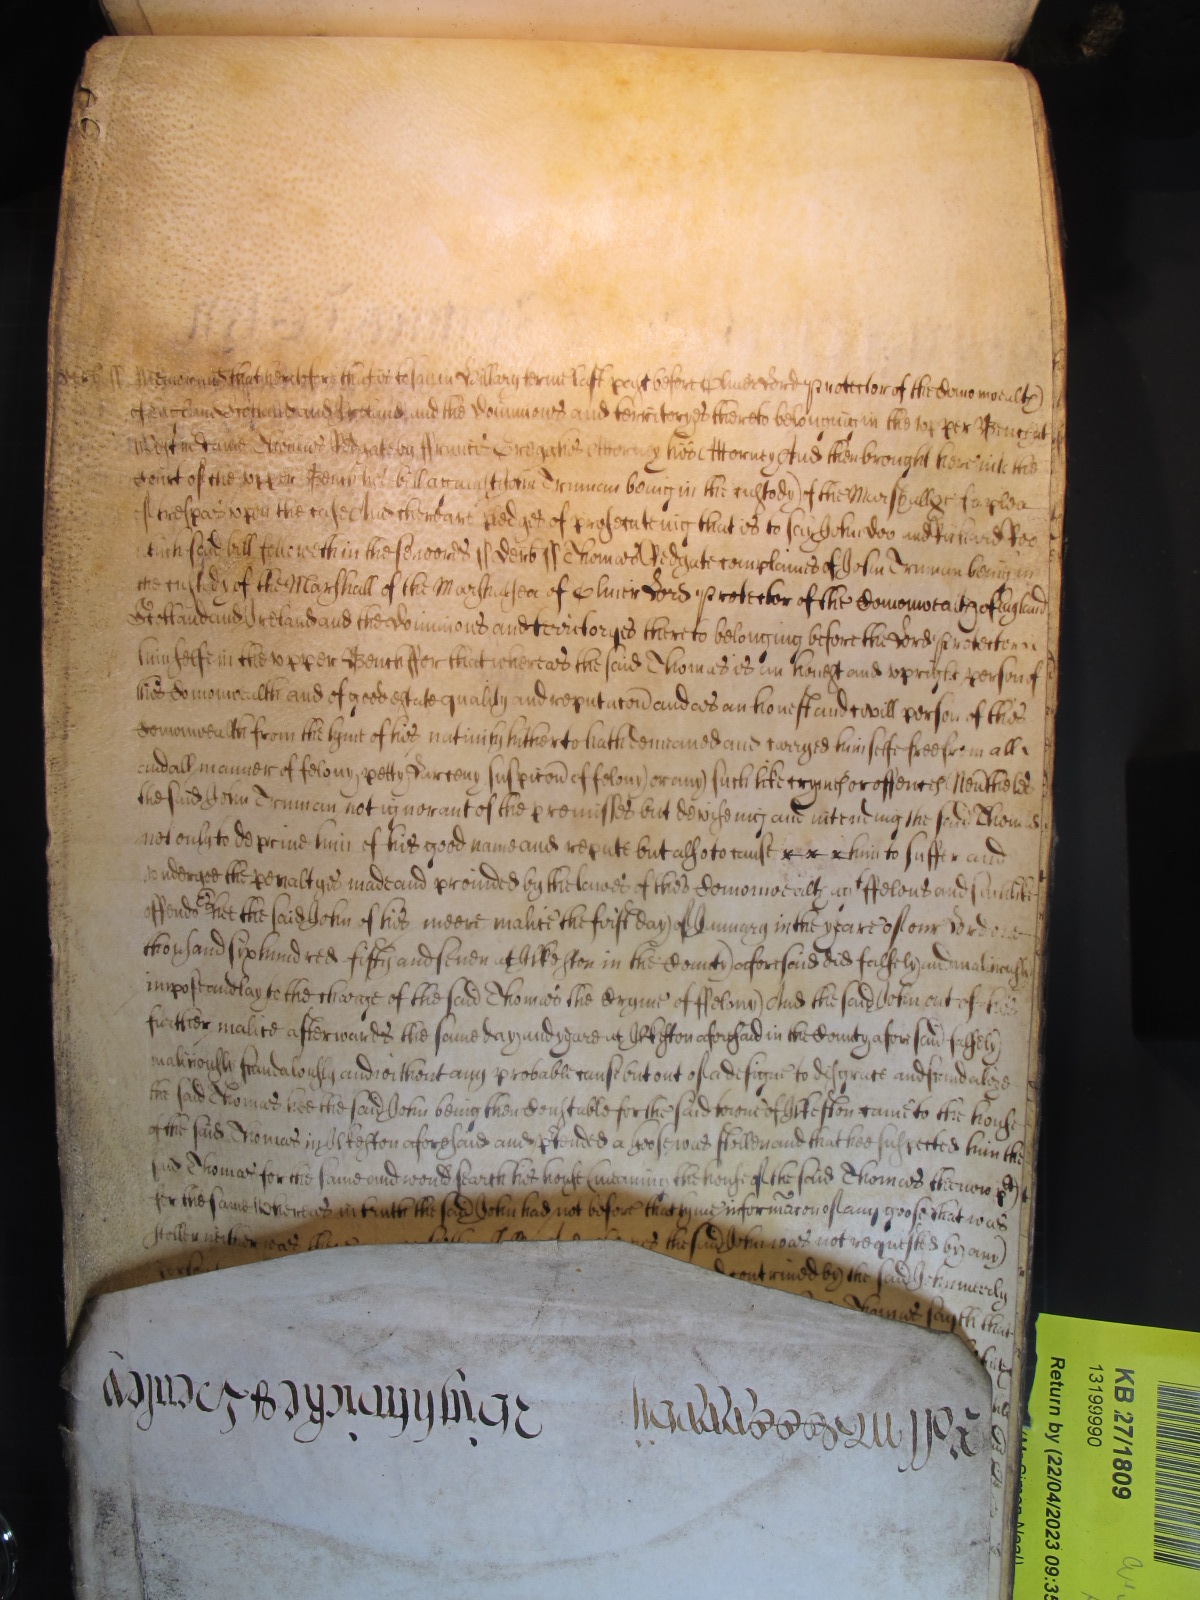 Memorand that heretofore that is to say in Hillary terme last past before Oliver Lord Protector of the Comonwealth
of England Scotland and Ireland and the Dominions and territoryes thereto belonging in the upper Bench at
Westm came Thomas Redgate by Francis his Attorney And then brought here into the
Court of the upper Bench his bill against John Truman being in the custody of the Marshall &c of a plea
of trespas upon the case And there are pledges of prosecuteing that is to say John Doo and Richard Roo
which said bill followeth in these words ss Derb ss Thomas Redgate complaines of John Truman being in
the custody of the Marshall of the Marshalsea of Oliver Lord Protector of the Comonwealth of England
Scotland and Ireland and the Dominions and territoryes thereto belonging before the Lord Protector
himselfe in the upper Bench ffor that whereas the said Thomas is an honest and upright person of
this Comonwealth and of good estate quality and reputacon and as an honest and civill person of this
Comonwealth from the tyme of his nativity hitherto hath demeaned and carryed himselfe free from all
and all manner of felony petty Larceny suspicon of felony or any such like cryme or offence Neutheles
the said John Truman not ignorant of the premisses but deviseing and intending the said Thomas
not only to deprive him of his good name and repute but also to cause x x x him to suffer and
undergoe the penaltyes made and provided by the lawes of this Comonwealth agt ffelons and such like
offendrs hee the said John of his meere malice the first day of January in the yeare of our Lord one
thousand six hundred fifty and seven at Ilkeston in the County aforesaid did falsely and maliciously
impose and lay to the charge of the said Thomas the Cryme of ffelony And the said John out of his
further malice afterwards the same day and yeare at Ilkeston aforesaid in the County aforesaid falsely
maliciously scandalously and without any probable cause but out of a designe to disgrace and scandalize
the said Thomas hee the said John being then Constable for the said towne of Ilkeston came to the house
of the said Thomas in Ilkeston aforesaid and ptended a goose was stollen and that hee suspected him the
said Thomas for the same and would search his house (meaning the house of the said Thomas the now pt)
for the same Whereas in truth the said John had not before that tyme informacon of any goose that was
stollen neither was the said John was not requested by any
person contrived by the said John meerly
Thomas sayth that
Wightwicke & Henley
KB 271809
13199990
Return by (22/04/2023 09:35